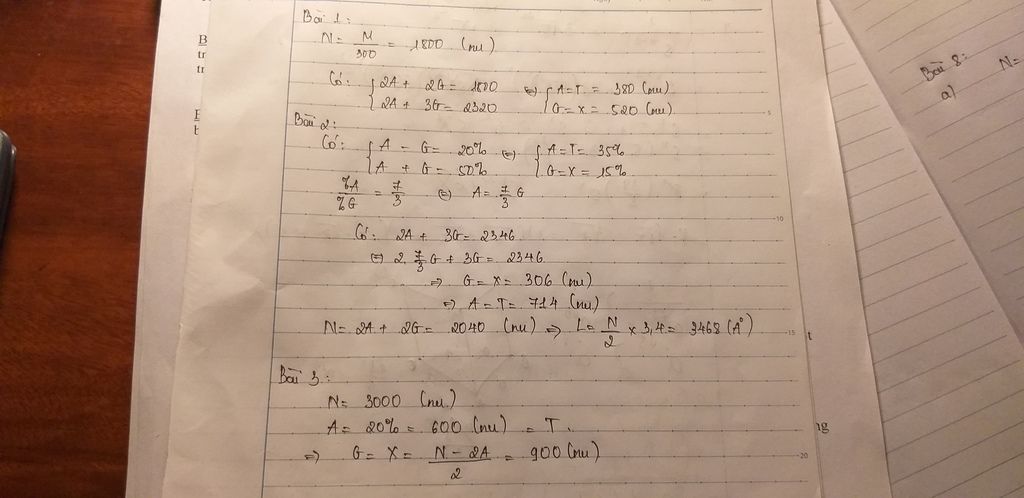 Bài 1:
N = M/300 = 1800 (nu)
Có: { 2A + 2G = 1800 ⇔ { A = T = 380 (nu)
2A + 3G = 2320 G = X = 520 (nu)
Bài 2:
Có: { A - G = 20% ⇔ { A = T = 35%
A + G = 50% G = X = 15%
%A/%G = 7/3 ⇔ A = 7/3 G
Có: 2A + 3G = 2346
⇔ 2. 7/3 G + 3G = 2346
⇒ G = X = 306 (nu)
⇒ A = T = 714 (nu)
N = 2A + 2G = 2040 (nu) ⇒ L = N/2 x 3,4 = 3468 (A°)
Bài 3:
N = 3000 (nu)
A = 20% = 600 (nu) = T.
⇒ G = X = N - 2A / 2 = 900 (nu)
Bài 8:
a) N =
5
10
15
20
B
tr
tr
b
t
ng